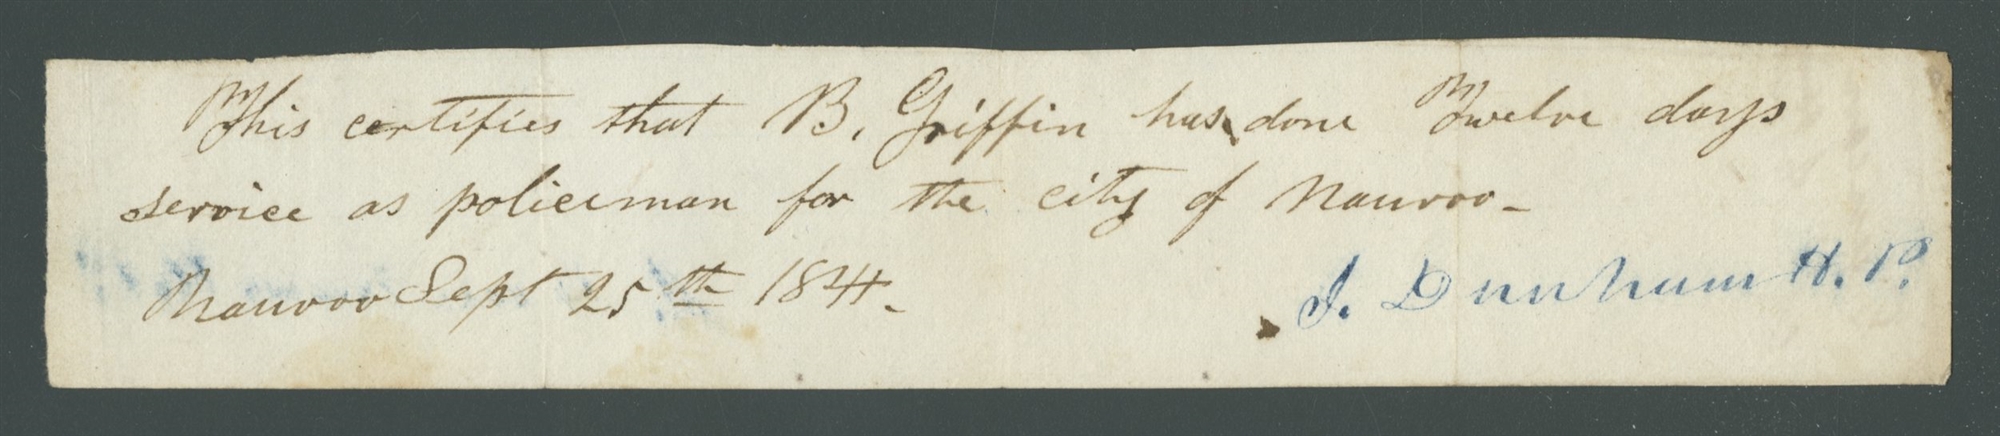 This certifies that B. Griffin has done Twelve days
service as policeman for the city of Nauvoo-
Nauvoo Sept 25th 1844.
J. Dunham H. P.